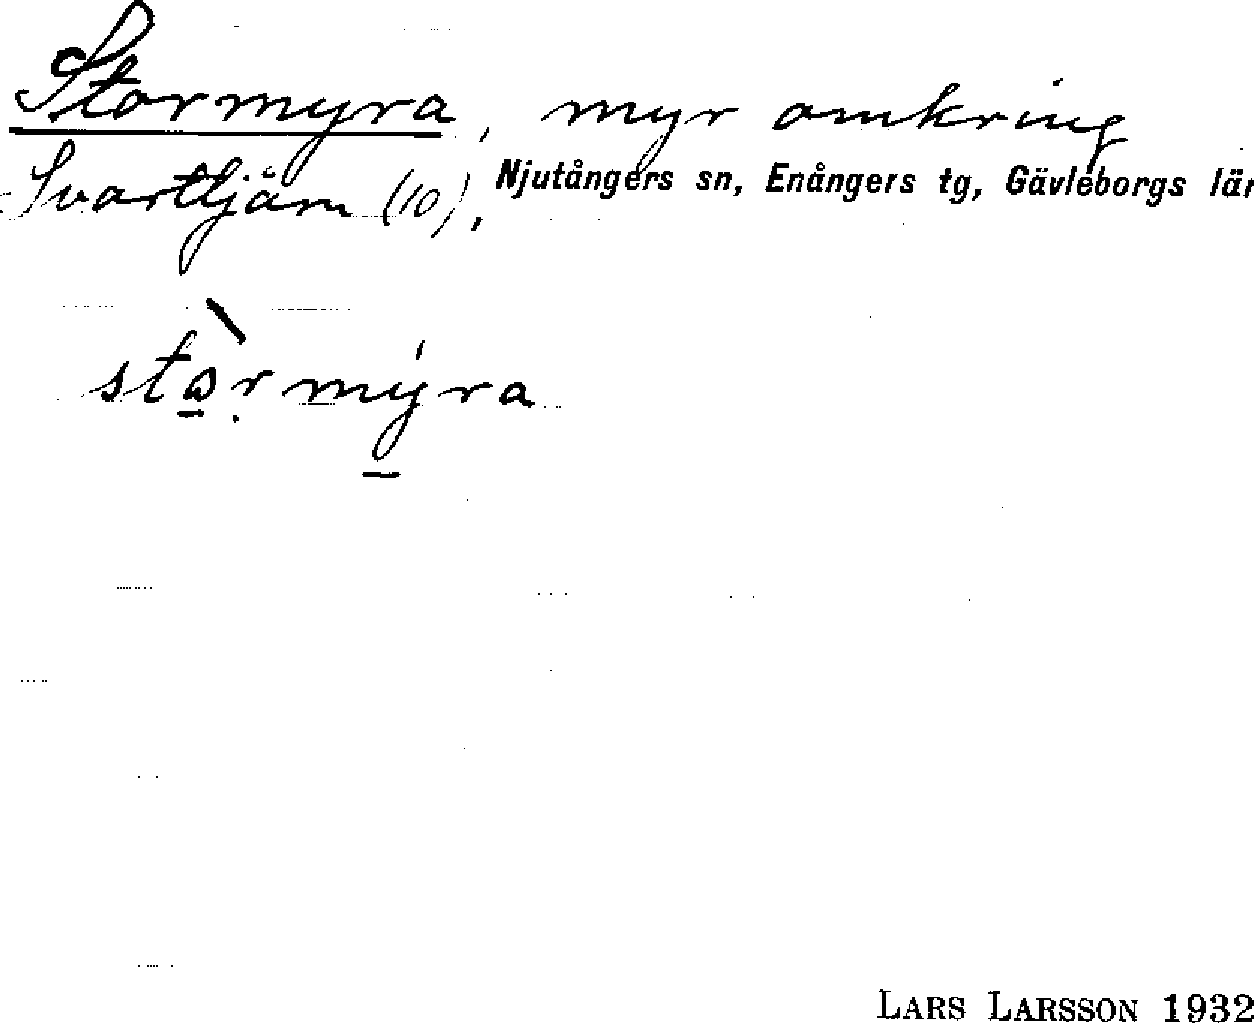 Stormyra, myr omkring
Svarttjärn (10), Njutångers sn, Enångers tg, Gävleborgs län
stò̱ṛmý̱ra
LARS LARSSON 1932